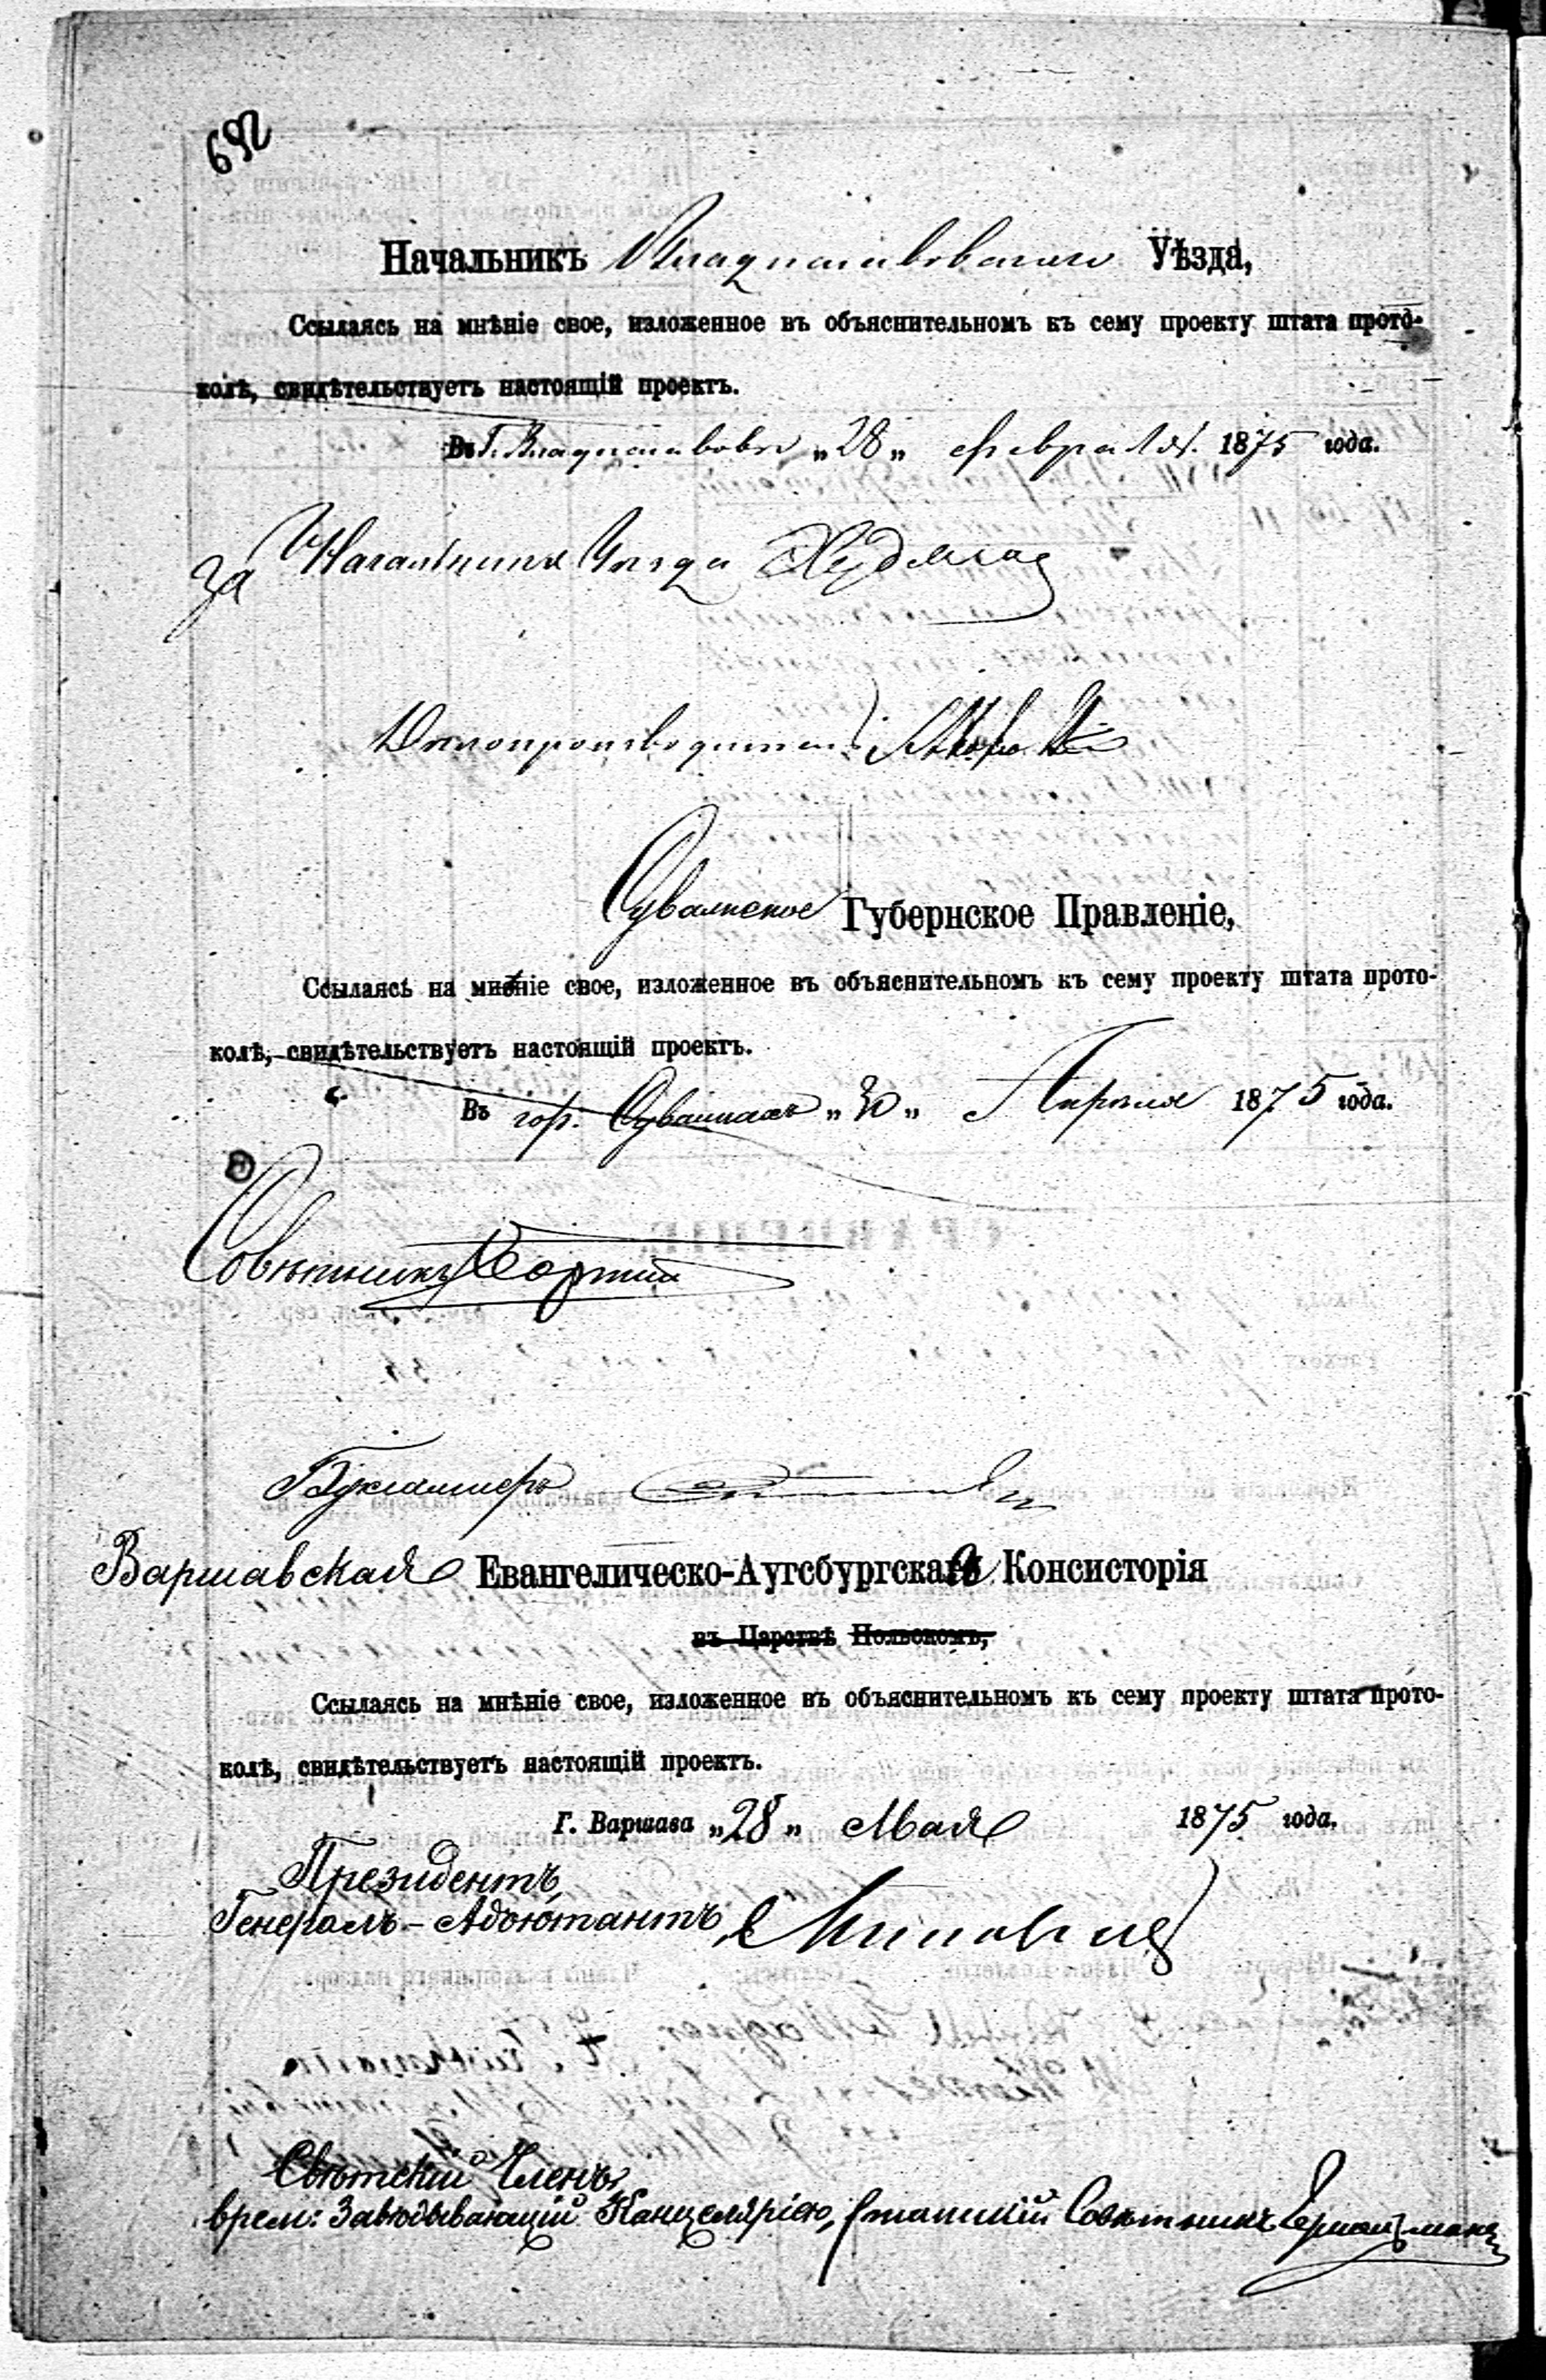 692
Начальникъ Владиславовскаго Уѣзда,
Ссылаясь на мнѣніе свое, изложенное въ объяснительномъ къ сему проекту штата прото-
колѣ, свидѣтельствуетъ настоящій проектъ.
Въ г. Владиславовѣ „28„ февраля 1875 года.
За Начальника Уѣзда
Дѣлопроизводитель
Сувалкское Губернское Правленіе,
Ссылаясь на мнѣніе свое, изложенное въ объяснительномъ къ сему проекту штата прото-
колѣ, свидѣтельствуетъ настоящій проектъ.
Въ гор. Сувалкахъ „30„ Апрѣля 1875 года.
Совѣтникъ
Бухгалтеръ
Варшавская Евангелическо-Аугсбургская Консисторія
въ Царствѣ Польскомъ,
Ссылаясь на мнѣніе свое, изложенное въ объяснительномъ къ сему проекту штата прото-
колѣ, свидѣтельствуетъ настоящій проектъ.
Г. Варшава „28„ Мая 1875 года.
Президентъ,
Генералъ-Адъютантъ,
Свѣтскій Членъ,
врем: Завѣдывающій Канцеляріею, Статскій Совѣтникъ